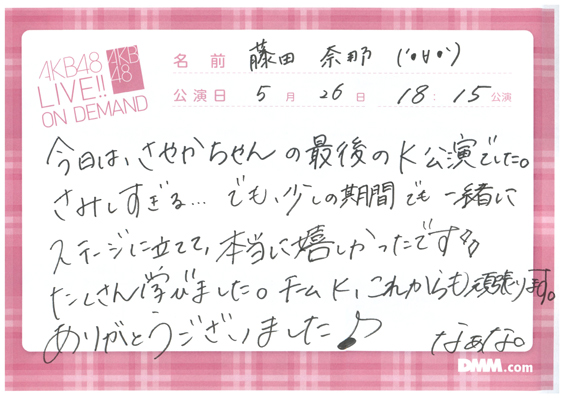 AKB48
LIVE!!
ON DEMAND
AKB
48
名前 藤田 奈那 (´•∀•`)
公演日 5月26日 18:15公演
今日は、さやかちゃんの最後のK公演でした。
さみしすぎる… でも、少しの期間でも一緒に
ステージに立てて、本当に嬉しかったです
たくさん学びました。チームK、これからも頑張ります。
ありがとうございました♪
なぁな。
DMM.com